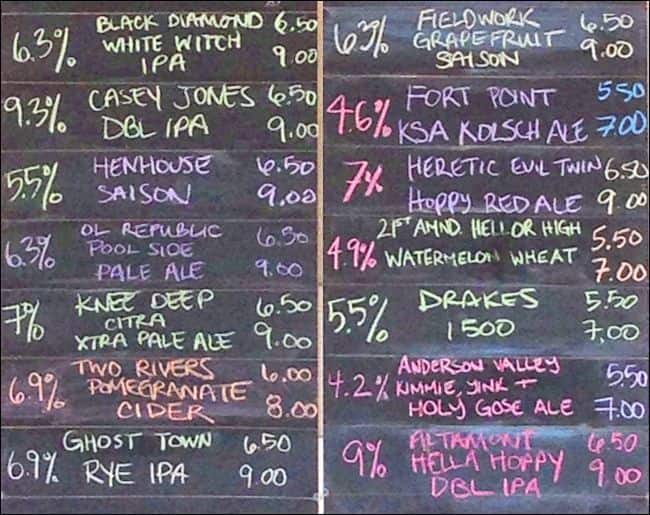 6.3% BLACK DIAMOND 6.50
WHITE WITCH
IPA 9.00
9.3% CASEY JONES 6.50
DBL IPA 9.00
5.5% HENHOUSE 6.50
SAISON 9.00
6.3% OL REPUBLIC 6.50
POOL SIDE
PALE ALE 9.00
7% KNEE DEEP 6.50
CITRA
XTRA PALE ALE 9.00
6.9% TWO RIVERS 6.00
POMEGRANATE
CIDER 8.00
6.9% GHOST TOWN 6.50
RYE IPA 9.00
6.3% FIELDWORK 6.50
GRAPEFRUIT 9.00
SAISON
4.6% FORT POINT 5.50
KSA KOLSCH ALE 7.00
7% HERETIC EVIL TWIN 6.50
HOPPY RED ALE 9.00
4.9% 21ST AMND. HELL OR HIGH 5.50
WATERMELON WHEAT 7.00
5.5% DRAKES 5.50
1500 7,00
4.2% ANDERSON VALLEY 5.50
KIMMIE, YINK +
HOLY GOSE ALE 7.00
9% ALTAMONT 6.50
HELLA HOPPY 9.00
DBL IPA